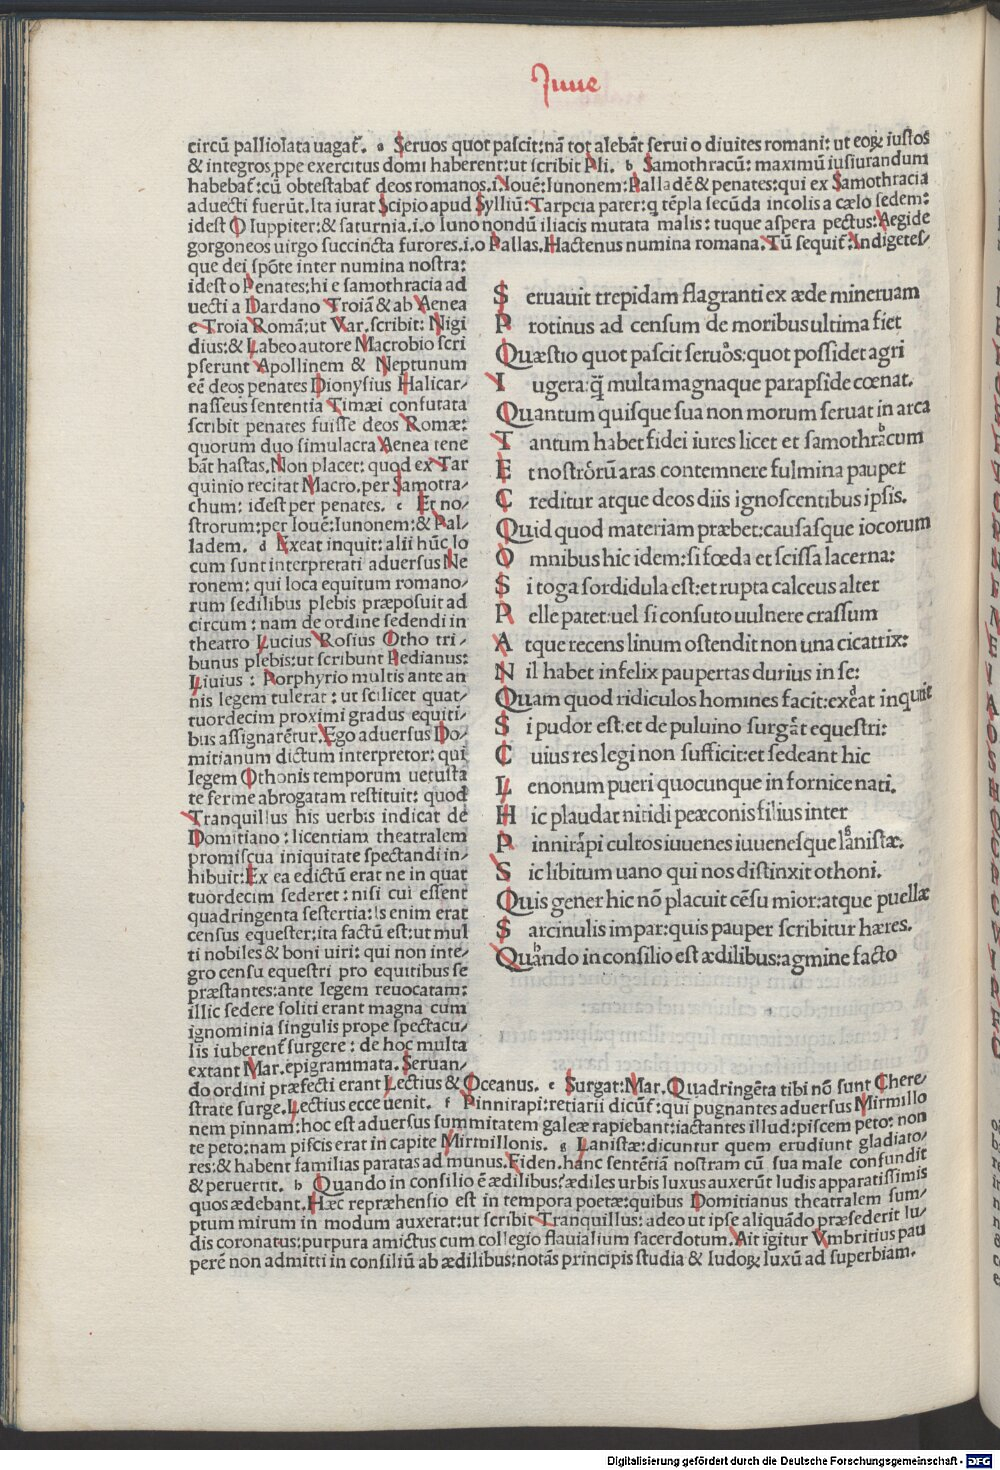 Juue
circū palliolata uagaꝉ. a Seruos quot pascit:nā tot alebāt serui o diuites romani: ut eoꝝ iustos
& integros,ppe exercitus domi haberent:ut scribit Pli. b Samothracū: maximū iusiurandum
habebaꝉ:cū obtestabaꝉ deos romanos.i.Iouē:Iunonem:Palladē & penates:qui ex Samothracia
aduecti fuerūt.Ita iurat Scipio apud Sylliū:Tarpeia pater:q tēpla secūda incolis a cælo sedem:
idest O Iuppiter:& saturnia.i.o Iuno nondū iliacis mutata malis: tuque aspera pectus:Aegide
gorgoneos uirgo succincta furores.i.o Pallas.Hactenus numina romana.Tū sequiꝉ:Indigetes/
que dei spōte inter numina nostra:
idest o Penates:hi e samothracia ad
uecti a Dardano Troiā & ab Aenea
e Troia Romā:ut Var.scribit: Nigi
dius:& Labeo autore Macrobio scri
pserunt Apollinem & Neptunum
eē deos penates Dionysius Halicar/
nasseus sententia Timæi confutata
scribit penates fuisse deos Romæ:
quorum duo simulacra Aenea tene
bāt hastas.Non placet: quod ex Tar
quinio recitat Macro.per Samotra/
chum: idest per penates. c Et no/
strorum:per Iouē:Iunonem:& Pal/
ladem. d Exeat inquit: alii hūc lo
cum sunt interpretati aduersus Ne
ronem: qui loca equitum romano/
rum sedilibus plebis præposuit ad
circum : nam de ordine sedendi in
theatro Lucius Rosius Otho tri/
bunus plebis:ut scribunt Pedianus:
Liuius : Porphyrio multis ante an
nis legem tulerat : ut scilicet quat/
tuordecim proximi gradus equiti/
bus assignarētur.Ego aduersus Do/
mitianum dictum interpretor: qui
legem Othonis temporum uetusta
te ferme abrogatam restituit: quod
Tranquillus his uerbis indicat de
Domitiano : licentiam theatralem
promiscua iniquitate spectandi in/
hibuit:Ex ea edictū erat ne in quat
tuordecim sederet : nisi cui essent
quadringenta sestertia:Is enim erat
census equester:ita factū est:ut mul
ti nobiles & boni uiri: qui non inte/
gro censu equestri pro equitibus se
præstantes:ante legem reuocatam:
illic sedere soliti erant magna cum
ignominia singulis prope spectacu/
lis iuberenꝉ surgere : de hoc multa
extant Mar.epigrammata. Seruan/
S eruauit trepidam flagranti ex æde mineruam
P rotinus ad censum de moribus ultima fiet
Quæstio quot pascit seruos:quot possidet agri
I ugera:ꝗ̄ multa magnaque parapside cœnat.
Quantum quisque sua non morum seruat in arca
T antum habet fidei iures licet et samothracum
E t nostrorū aras contemnere fulmina pauper
C reditur atque deos diis ignoscentibus ipsis.
Quid quod materiam præbet:causasque iocorum
O mnibus hic idem:si fœda et scissa lacerna:
S i toga sordidula est:et rupta calceus alter
P elle patet:uel si consuto uulnere crassum
A tque recens linum ostendit non una cicatrix:
N il habet infelix paupertas durius in se:
Quam quod ridiculos homines facit:exeat inquit
S i pudor est:et de puluino surgat equestri:
C uius res legi non sufficit:et sedeant hic
L enonum pueri quocunque in fornice nati.
H ic plaudat nitidi pæconis filius inter
P innirapi cultos iuuenes iuuenesque lanistæ.
S ic libitum uano qui nos distinxit othoni.
Quis gener hic nō placuit cēsu mior:atque puellæ
S arcinulis impar:quis pauper scribitur hæres.
Quando in consilio est ædilibus:agmine facto
do ordini præfecti erant Lectius & Oceanus. e Surgat:Mar.Quadringēta tibi nō sunt Chere/
strate surge.Lectius ecce uenit. f Pinnirapi:retiarii dicūꝉ:qui pugnantes aduersus Mirmillo
nem pinnam:hoc est aduersus summitatem galeæ rapiebant:iactantes illud:piscem peto: non
te peto:nam piscis erat in capite Mirmillonis. g Lanistæ:dicuntur quem erudiunt gladiato/
res:& habent familias paratas ad munus.Fiden.hanc sentētiā nostram cū sua male confundit
& peruertit. b Quando in consilio ē ædilibus:ædiles urbis luxus auxerūt ludis apparatissimis
quos ædebant.Hæc repræhensio est in tempora poetæ:quibus Domitianus theatralem sum/
ptum mirum in modum auxerat:ut scribit Tranquillus: adeo ut ipse aliquādo præsederit lu/
dis coronatus:purpura amictus cum collegio flauialium sacerdotum.Ait igitur Vmbritius pau
perē non admitti in consiliū ab ædilibus:notās principis studia & ludoꝝ luxū ad superbiam.
Digitalisierung gefördert durch die Deutsche Forschungsgemeinschaft - DFG